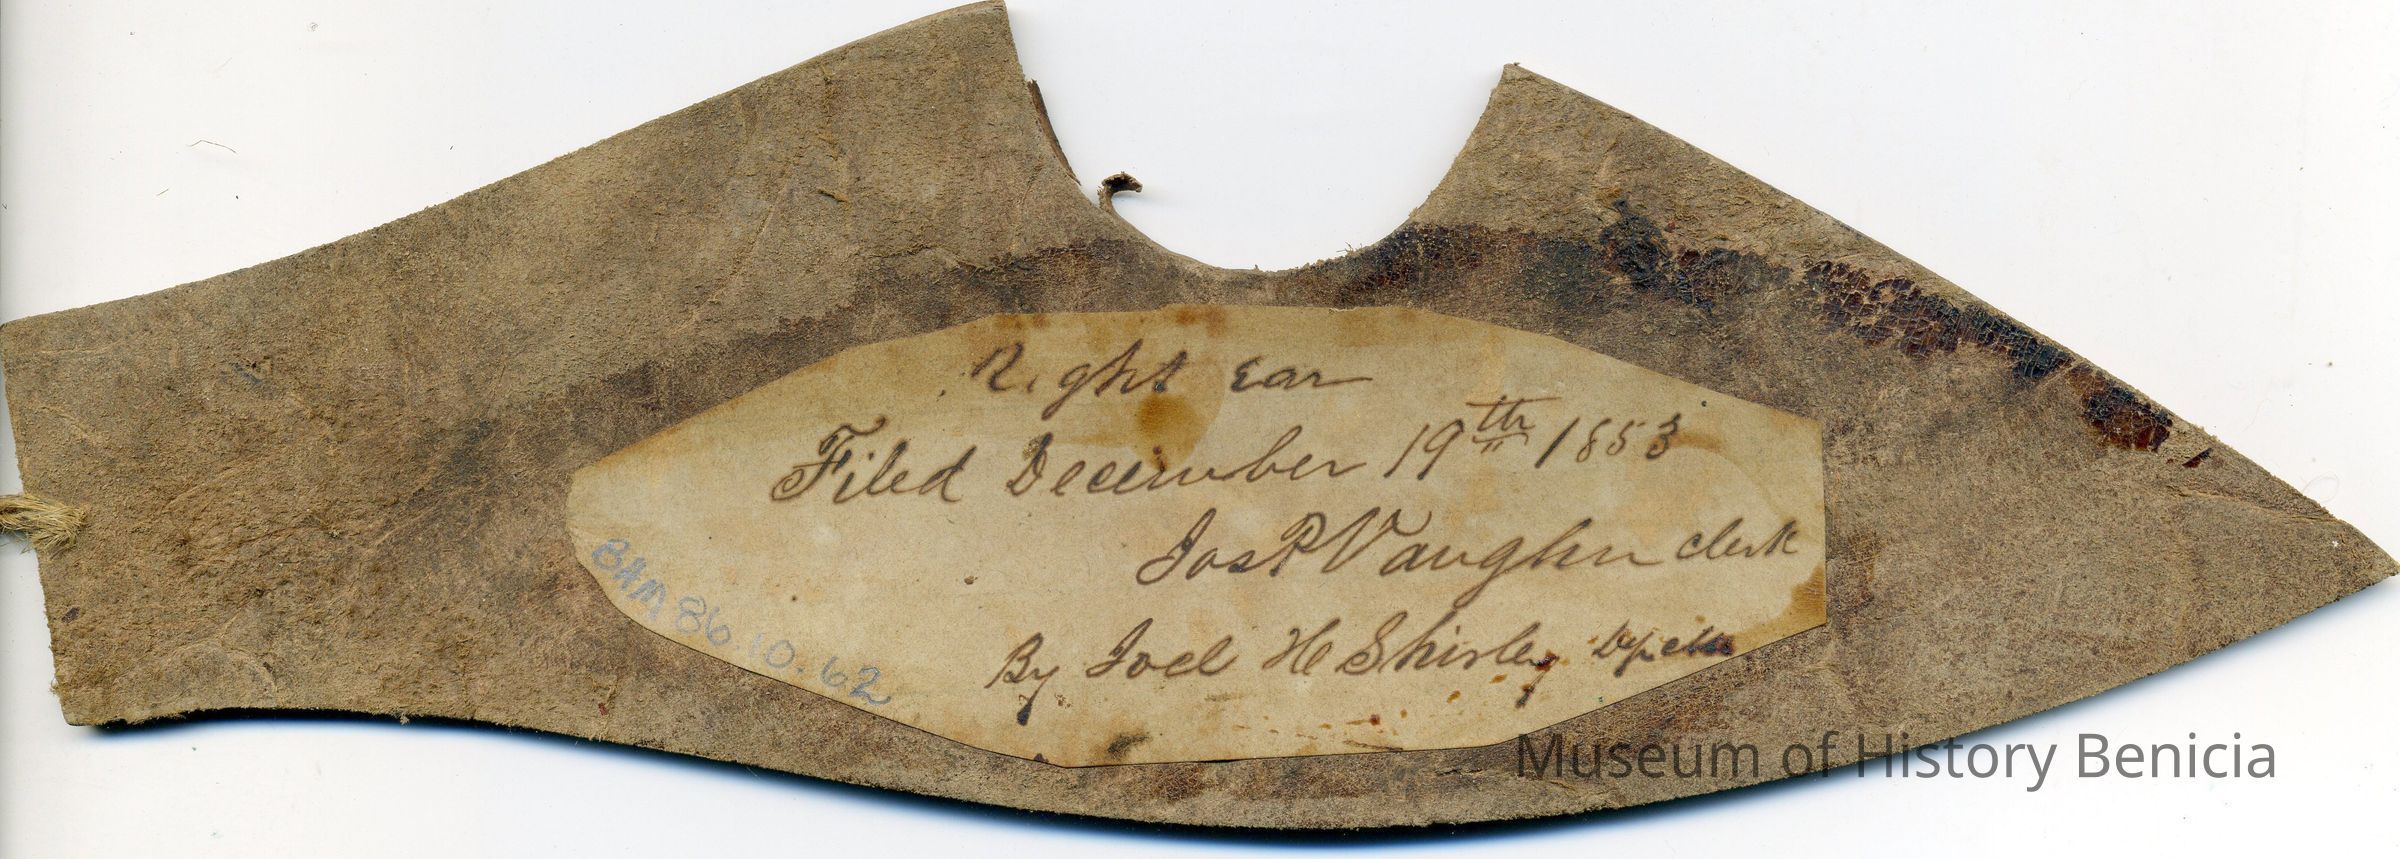 Right Ear
Filed December 19th 1853
Jos P Vaughn clerk
By Joel H Shirley Dp clk
BAM 86.10.62
Museum of History Benicia